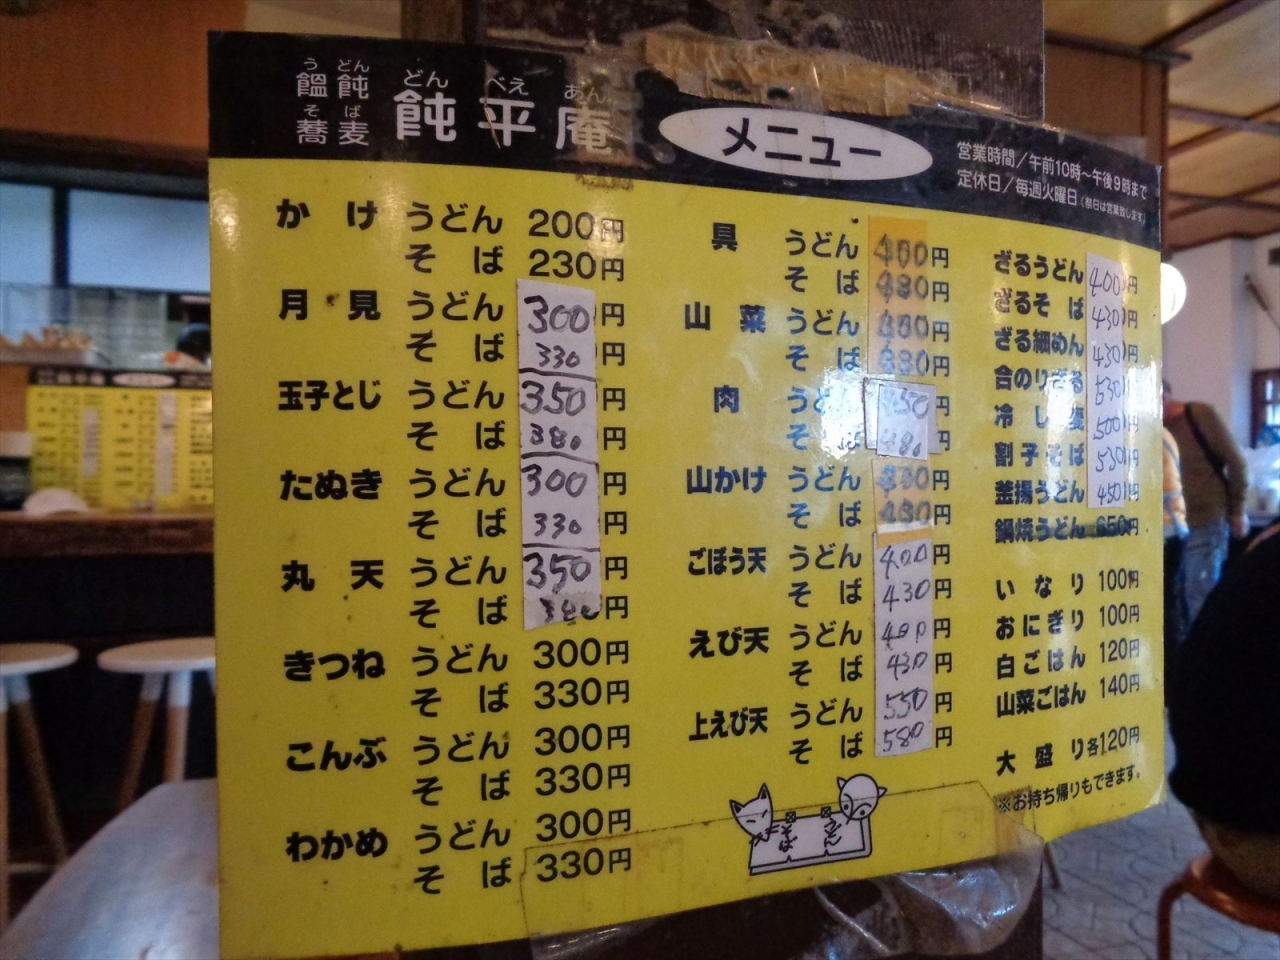 うどん
饂飩
そば
蕎麦
どんべえあん
飩平庵
メニュー
営業時間／午前10時～午後9時まで
定休日／毎週火曜日（祭日は営業致します）
かけ うどん 200円
そば 230円
月見 うどん 300円
そば 330円
玉子とじ うどん 350円
そば 380円
たぬき うどん 300円
そば 330円
丸天 うどん 350円
そば 380円
きつね うどん 300円
そば 330円
こんぶ うどん 300円
そば 330円
わかめ うどん 300円
そば 330円
具 うどん 400円
そば 円
山菜 うどん 円
そば 円
肉 うどん 450円
そば 480円
山かけ うどん 円
そば 円
ごぼう天 うどん 400円
そば 430円
えび天 うどん 400円
そば 430円
上えび天 うどん 550円
そば 580円
そば
うどん
ざるうどん 400円
ざるそば 430円
ざる細めん 430円
合のりざる 530円
冷し麦 500円
割子そば 530円
釜揚うどん 450円
鍋焼うどん 650円
いなり 100円
おにぎり 100円
白ごはん 120円
山菜ごはん 140円
大盛り各120円
※お持ち帰りもできます。